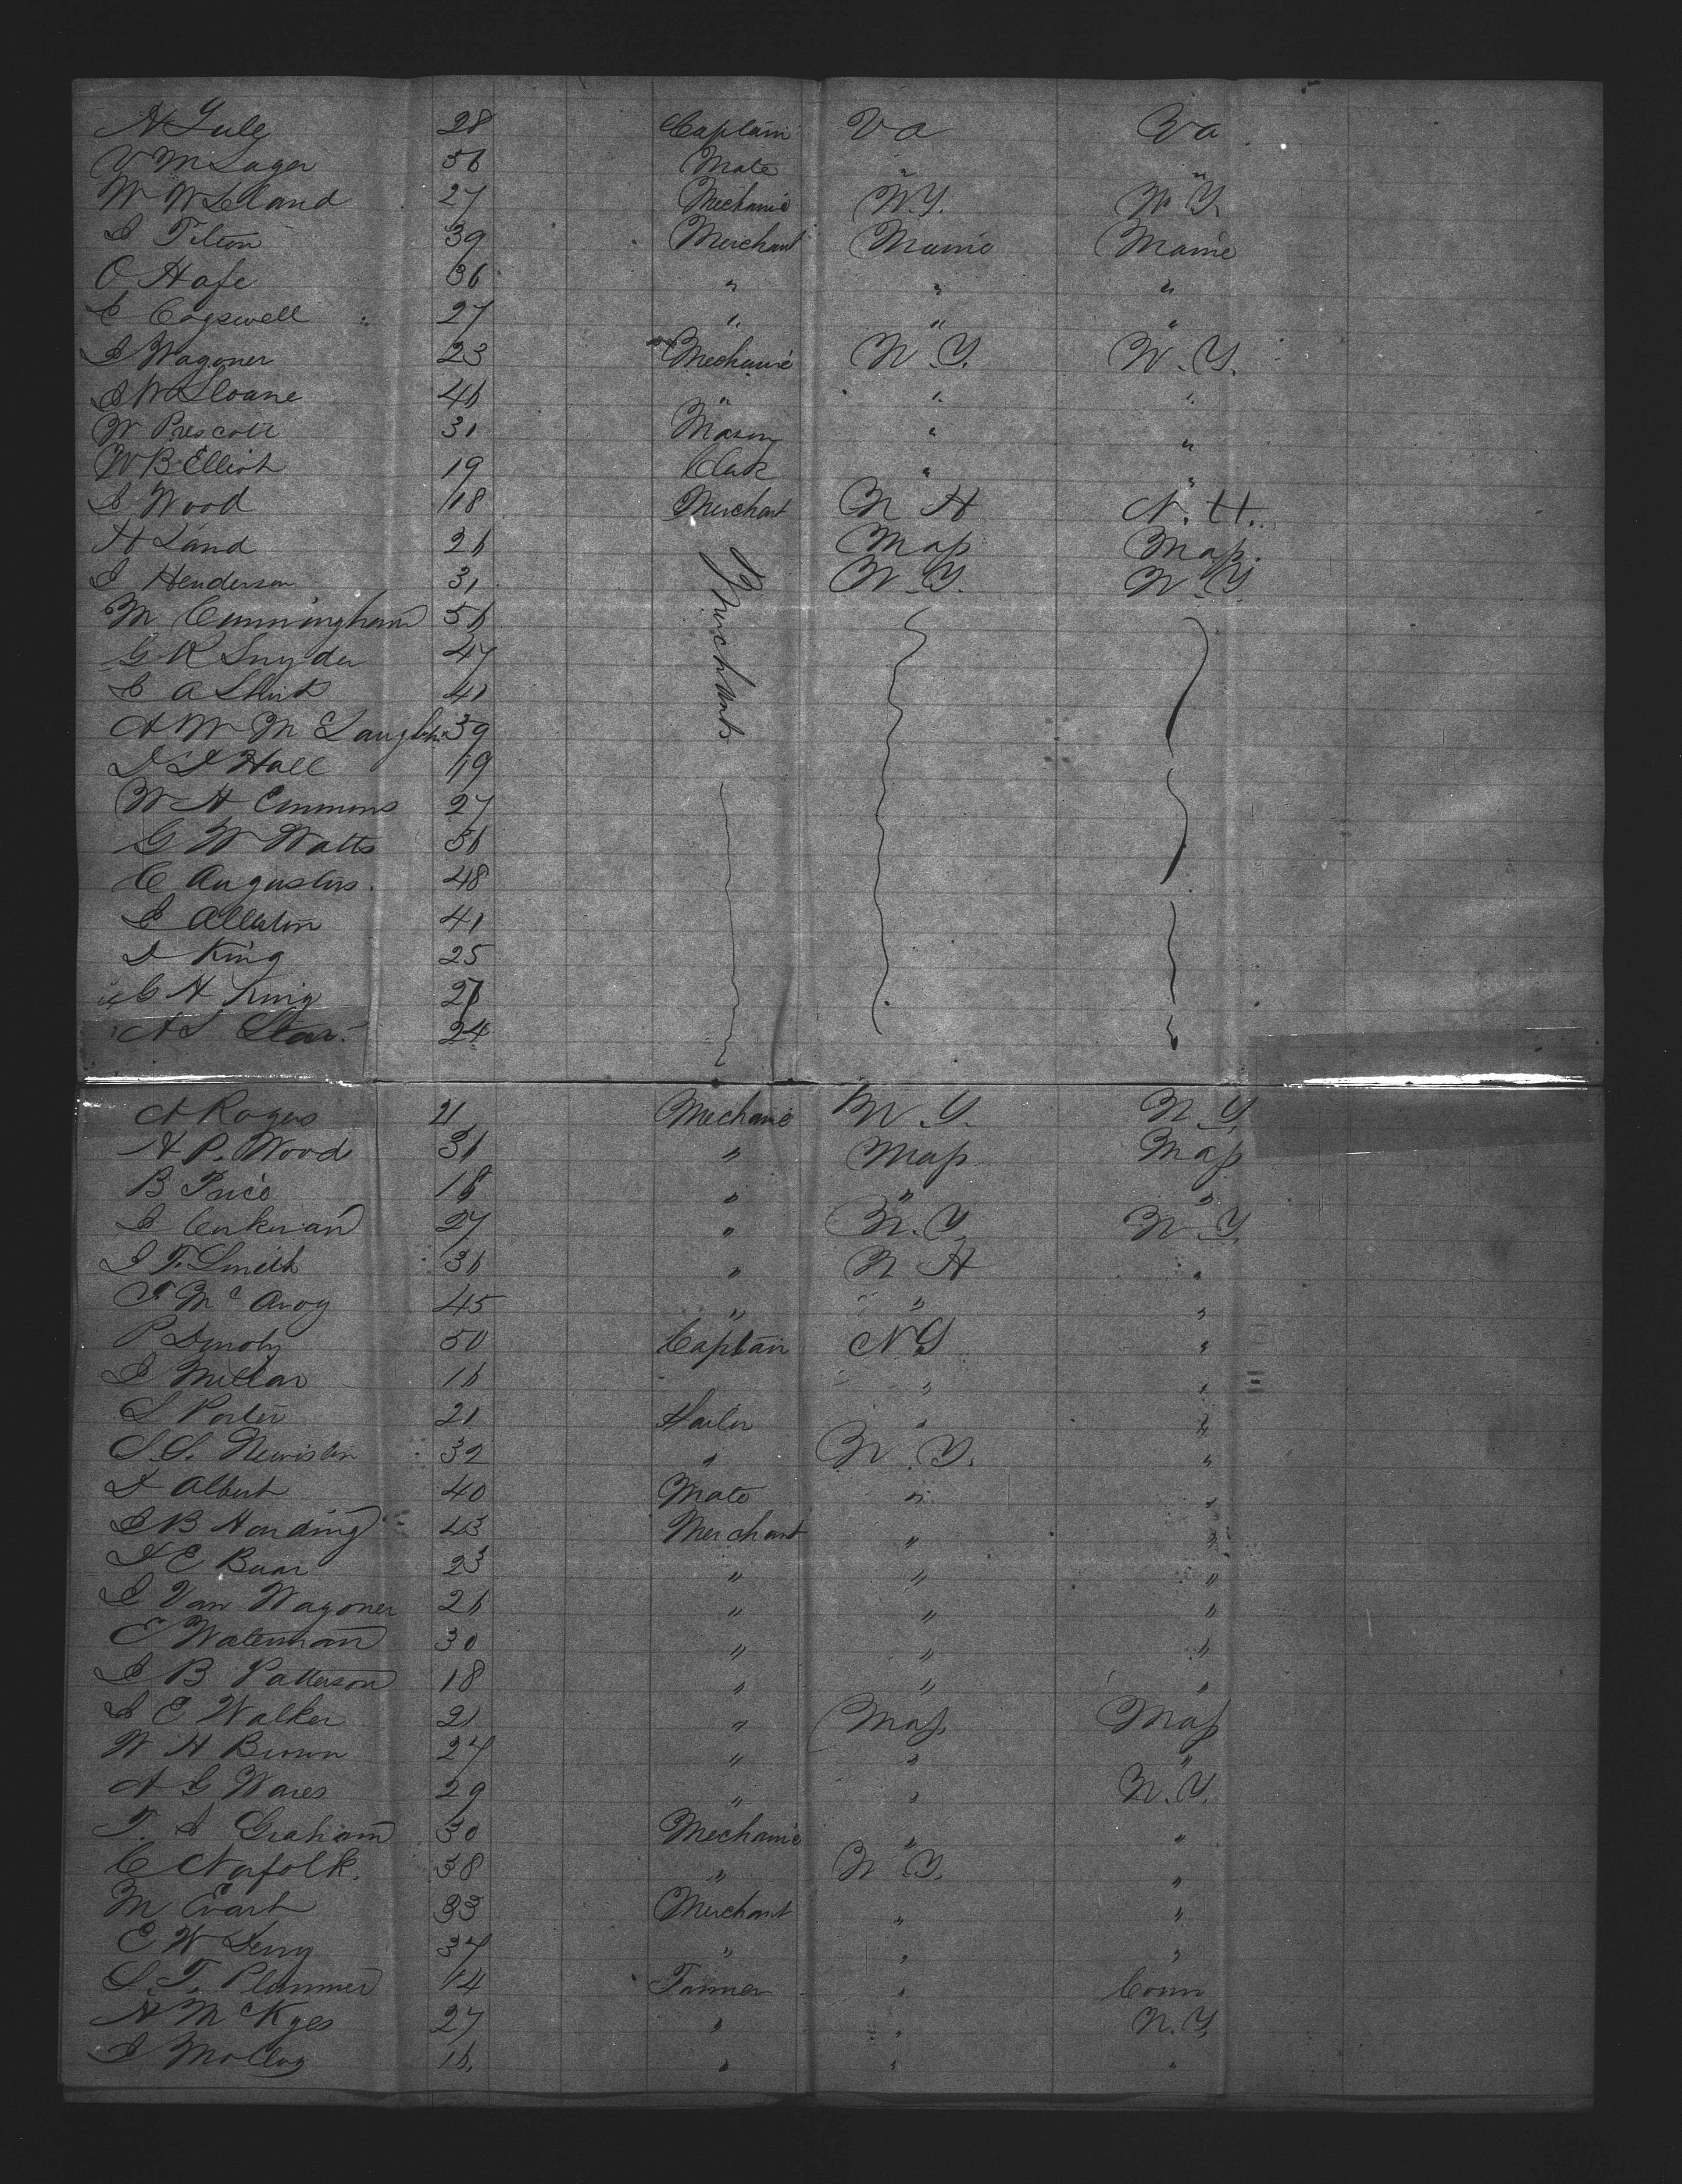 28 Captain Va Va
V M Sager 36 Mate " "
W W Leland 27 Mechanic N.Y. N.Y.
J Tilton 39 Merchant Maine Maine
O Hafe 36 " " "
C Cogswell 27 " " "
J Wagoner 23 Mechanic N.Y. N.Y.
J W Sloane 46 " " "
W Prescott 31 Mason " "
W B Elliot 19 Clerk " "
J Wood 18 Merchant N H N.H.
H Land 26 Mass Mass.
J Henderson 31 N.Y. N.Y.
Merchants
M Cunningham 56
G R Snyder 47
C A 41
A W McLaughlin 39
J J Hall 19
W H Emmons 27
G W Watts 36
C Augustus 48
J Allerton 41
J King 25
G H King
A S Star 24
A Rogers 21 Mechanic N.Y. N.Y.
H P. Wood 31 " Mass Mass
B Price 18 " " "
J Corkeran 27 " N.Y. N.Y.
J F. Smith 36 " N H "
T McAvoy 45 " " "
P 50 Captain N S "
J Millar 16 " "
S Porter 21 Sailor " "
S.S. 32 " N.Y. "
J Albert 40 Mate " "
J B Harding 43 Merchant " "
J E Baar 23 " " "
J Van Wagoner 26 " " "
E Waterman 30 " " "
J B Patterson 18 " " "
J E Walker 21 " Mass Mass
W H Brown 27 " " "
A G Wares 29 " " N.Y.
T. J Graham 30 Mechanic " "
C Norfolk. 38 " N.Y. "
M Evart 33 Merchant " "
E W 37 " " "
S. T. Plummer 14 " Conn
N McKyes 27 " " N.Y.
J Molloy 16 " " "